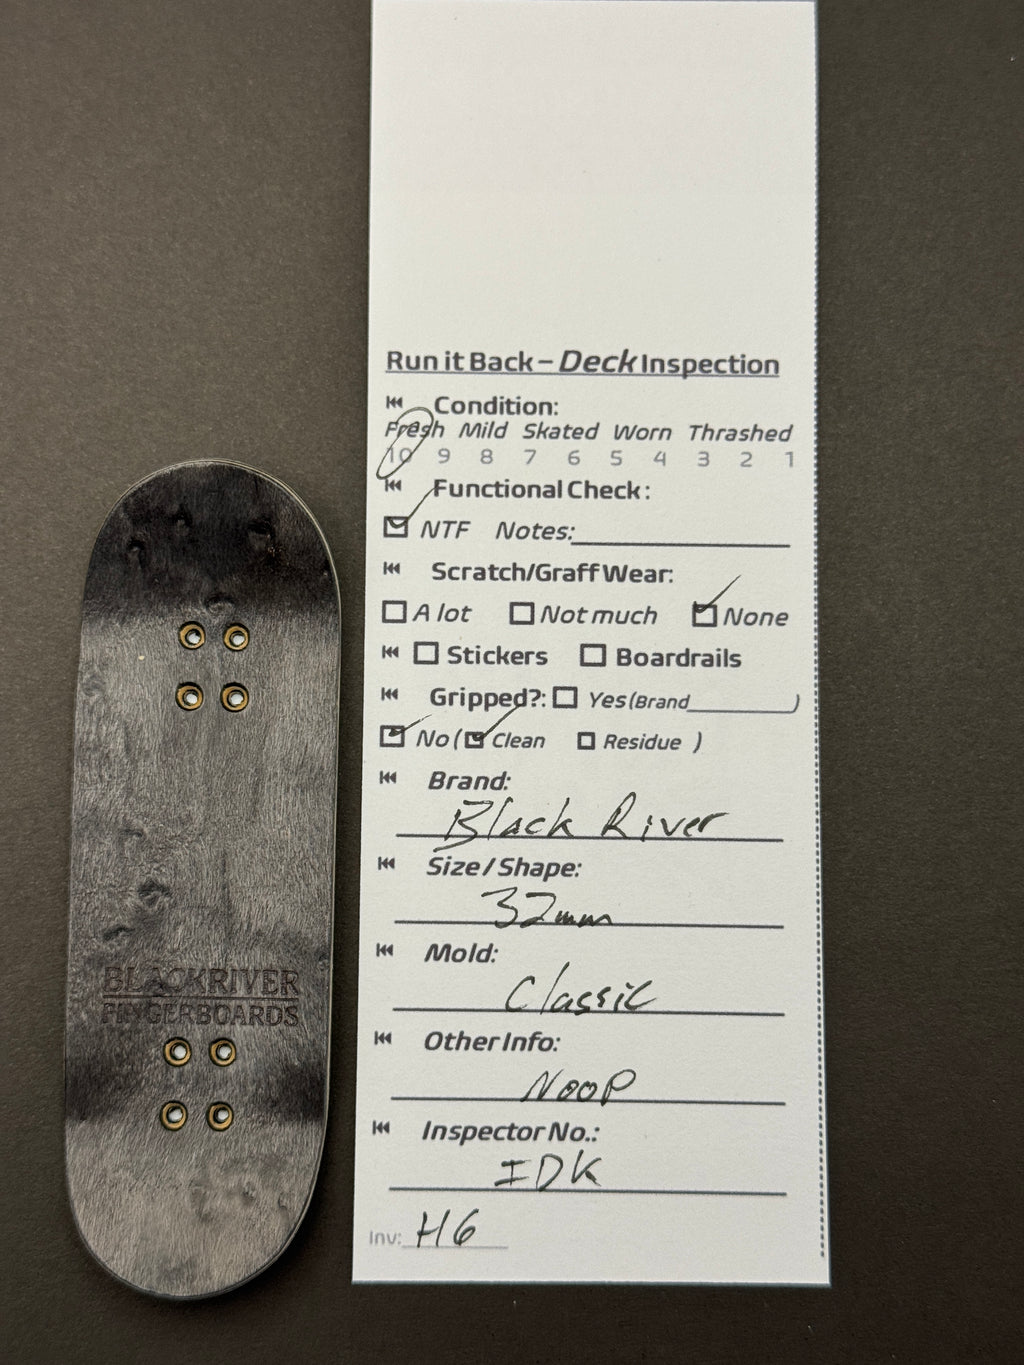 Run it Back – Deck Inspection
Condition:
Fresh Mild Skated Worn Thrashed
10 9 8 7 6 5 4 3 2 1
Functional Check:
NTF Notes:
Scratch/Graff Wear:
A lot Not much None
Stickers Boardrails
Gripped?: Yes (Brand )
No ( Clean Residue )
Brand:
Black River
Size/Shape:
32mm
Mold:
Classic
Other Info:
NOOP
Inspector No.:
IDK
Inv: H6
BLACKRIVER
FINGERBOARDS